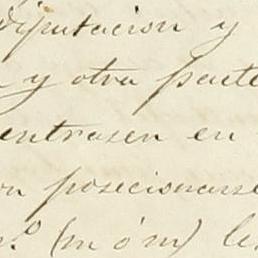 Diputacion y
y otra parte
entrasen en
posecionarse
(m ó m)